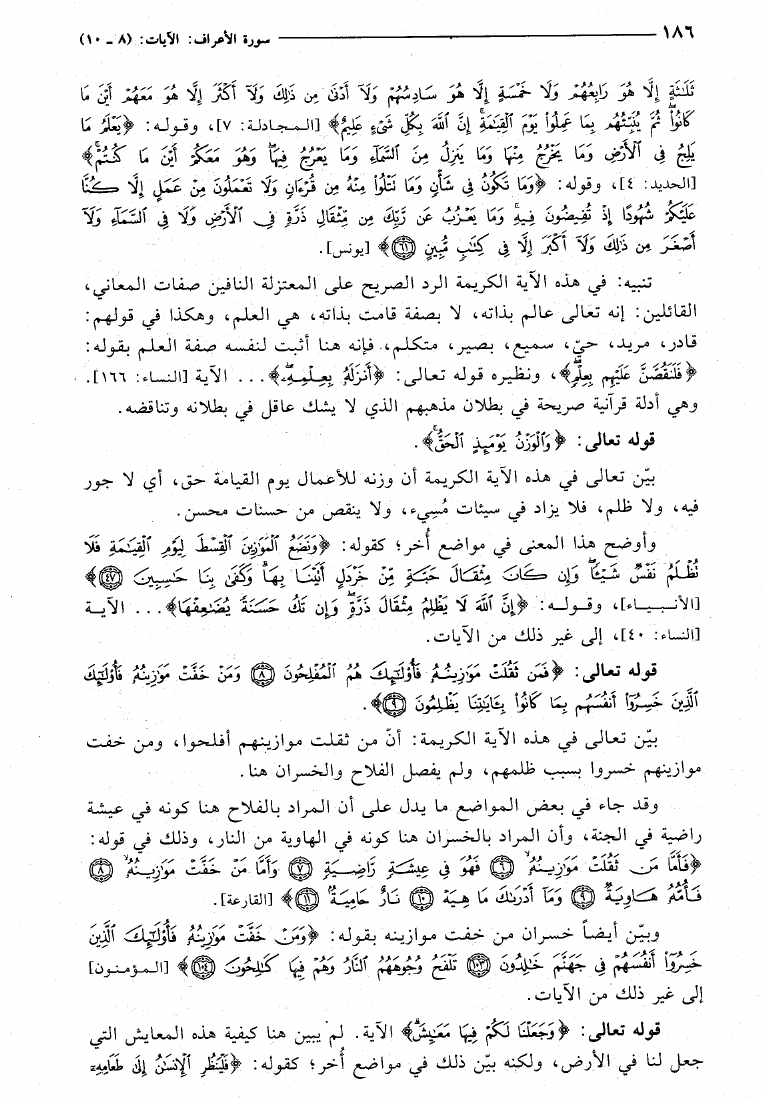 ١٨٦ سورة الأعراف: الآيات: (٨ - ١٠)
ثَلَٰثَةٍ إِلَّا هُوَ رَابِعُهُمْ وَلَا خَمْسَةٍ إِلَّا هُوَ سَادِسُهُمْ وَلَآ أَدْنَىٰ مِن ذَٰلِكَ وَلَآ أَكْثَرَ إِلَّا هُوَ مَعَهُمْ أَيْنَ مَا
كَانُوا۟ ۖ ثُمَّ يُنَبِّئُهُم بِمَا عَمِلُوا۟ يَوْمَ ٱلْقِيَٰمَةِ ۚ إِنَّ ٱللَّهَ بِكُلِّ شَىْءٍ عَلِيمٌ﴾ [المجادلة: ٧]، وقوله: ﴿يَعْلَمُ مَا
يَلِجُ فِى ٱلْأَرْضِ وَمَا يَخْرُجُ مِنْهَا وَمَا يَنزِلُ مِنَ ٱلسَّمَآءِ وَمَا يَعْرُجُ فِيهَا ۖ وَهُوَ مَعَكُمْ أَيْنَ مَا كُنتُمْ ۚ﴾
[الحديد: ٤]، وقوله: ﴿وَمَا تَكُونُ فِى شَأْنٍ وَمَا تَتْلُوا۟ مِنْهُ مِن قُرْءَانٍ وَلَا تَعْمَلُونَ مِنْ عَمَلٍ إِلَّا كُنَّا
عَلَيْكُمْ شُهُودًا إِذْ تُفِيضُونَ فِيهِ ۚ وَمَا يَعْزُبُ عَن رَّبِّكَ مِن مِّثْقَالِ ذَرَّةٍ فِى ٱلْأَرْضِ وَلَا فِى ٱلسَّمَآءِ وَلَآ
أَصْغَرَ مِن ذَٰلِكَ وَلَآ أَكْبَرَ إِلَّا فِى كِتَٰبٍ مُّبِينٍ ٦١﴾ [يونس].
تنبيه: في هذه الآية الكريمة الرد الصريح على المعتزلة النافين صفات المعاني،
القائلين: إنه تعالى عالم بذاته، لا بصفة قامت بذاته، هي العلم، وهكذا في قولهم:
قادر، مريد، حيّ، سميع، بصير، متكلم، فإنه هنا أثبت لنفسه صفة العلم بقوله:
﴿فَلَنَقُصَّنَّ عَلَيْهِم بِعِلْمٍ ۖ﴾، ونظيره قوله تعالى: ﴿أَنزَلَهُۥ بِعِلْمِهِۦ ۖ﴾... الآية [النساء: ١٦٦].
وهي أدلة قرآنية صريحة في بطلان مذهبهم الذي لا يشك عاقل في بطلانه وتناقضه.
قوله تعالى: ﴿وَٱلْوَزْنُ يَوْمَئِذٍ ٱلْحَقُّ ۚ﴾.
بيّن تعالى في هذه الآية الكريمة أن وزنه للأعمال يوم القيامة حق، أي لا جور
فيه، ولا ظلم، فلا يزاد في سيئات مُسِيء، ولا ينقص من حسنات محسن.
وأوضح هذا المعنى في مواضع أُخر؛ كقوله: ﴿وَنَضَعُ ٱلْمَوَٰزِينَ ٱلْقِسْطَ لِيَوْمِ ٱلْقِيَٰمَةِ فَلَا
تُظْلَمُ نَفْسٌ شَيْـًٔا ۖ وَإِن كَانَ مِثْقَالَ حَبَّةٍ مِّنْ خَرْدَلٍ أَتَيْنَا بِهَا ۗ وَكَفَىٰ بِنَا حَٰسِبِينَ ٤٧﴾
[الأنبياء]، وقوله: ﴿إِنَّ ٱللَّهَ لَا يَظْلِمُ مِثْقَالَ ذَرَّةٍ ۖ وَإِن تَكُ حَسَنَةً يُضَٰعِفْهَا﴾... الآية
[النساء: ٤٠]، إلى غير ذلك من الآيات.
قوله تعالى: ﴿فَمَن ثَقُلَتْ مَوَٰزِينُهُۥ فَأُو۟لَٰٓئِكَ هُمُ ٱلْمُفْلِحُونَ ٨ وَمَنْ خَفَّتْ مَوَٰزِينُهُۥ فَأُو۟لَٰٓئِكَ
ٱلَّذِينَ خَسِرُوٓا۟ أَنفُسَهُم بِمَا كَانُوا۟ بِـَٔايَٰتِنَا يَظْلِمُونَ ٩﴾.
بيّن تعالى في هذه الآية الكريمة: أنّ من ثقلت موازينهم أفلحوا، ومن خفت
موازينهم خسروا بسبب ظلمهم، ولم يفصل الفلاح والخسران هنا.
وقد جاء في بعض المواضع ما يدل على أن المراد بالفلاح هنا كونه في عيشة
راضية في الجنة، وأن المراد بالخسران هنا كونه في الهاوية من النار، وذلك في قوله:
﴿فَأَمَّا مَن ثَقُلَتْ مَوَٰزِينُهُۥ ٦ فَهُوَ فِى عِيشَةٍ رَّاضِيَةٍ ٧ وَأَمَّا مَنْ خَفَّتْ مَوَٰزِينُهُۥ ٨
فَأُمُّهُۥ هَاوِيَةٌ ٩ وَمَآ أَدْرَىٰكَ مَا هِيَهْ ١٠ نَارٌ حَامِيَةٌۢ ١١﴾ [القارعة].
وبيّن أيضاً خسران من خفت موازينه بقوله: ﴿وَمَنْ خَفَّتْ مَوَٰزِينُهُۥ فَأُو۟لَٰٓئِكَ ٱلَّذِينَ
خَسِرُوٓا۟ أَنفُسَهُمْ فِى جَهَنَّمَ خَٰلِدُونَ ١٠٣ تَلْفَحُ وُجُوهَهُمُ ٱلنَّارُ وَهُمْ فِيهَا كَٰلِحُونَ ١٠٤﴾ [المؤمنون]
إلى غير ذلك من الآيات.
قوله تعالى: ﴿وَجَعَلْنَا لَكُمْ فِيهَا مَعَٰيِشَ ۗ﴾ الآية. لم يبين هنا كيفية هذه المعايش التي
جعل لنا في الأرض، ولكنه بيّن ذلك في مواضع أُخر؛ كقوله: ﴿فَلْيَنظُرِ ٱلْإِنسَٰنُ إِلَىٰ طَعَامِهِۦٓ